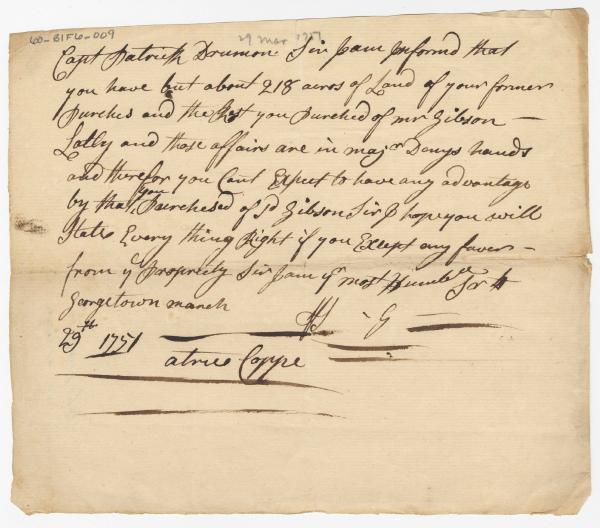 60-B1F6-009
29 Mar 1751
Capt Patrick Drumon Sir I am Informd that
you have but about 218 acros of Land of your former
Purches and the Rest you Purched of mr Gibson —
Latly and those affairs are in majr Denys hands
and therefor you Cant Expect to have any advantage
by that you Purchesed of Sd Gibson Sir I hope you will
State Every thing Right if you Except any faver —
from ye Propriety Sir I am yr most Humble Sr
Georgetown march
29th 1751
atrue Coppe